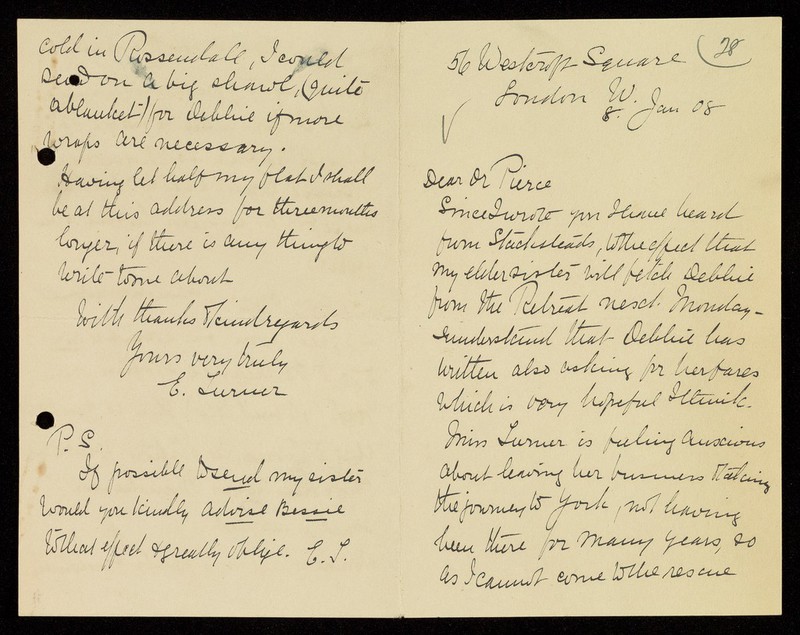 28
56 Westcroft Square
London W.
8. Jan 08
Dear Dr Pierce
Since I wrote you I have heard
from Stacksteads, to the effect that
my elder sister will fetch Debbie
from the Retreat next Monday –
I understand that Debbie has
written also asking for her fares
which is very hopeful I think.
Miss Turner is feeling anxious
about leaving her business & taking
the journey to York, not having
been there for many years, so
as I cannot come to the rescue
cold in Rossendall, I could
send on a big shawl, (quite
a blanket) for Debbie if more
wraps are necessary.
Having let half my flat I shall
be at this address for three months
longer, if there is any thing to
write to me about
With thanks & kind regards
Yours very truly
E. Turner
P.S.
If possible to send my sister
would you kindly advise Bessie
to that effect & greatly oblige. E.T.